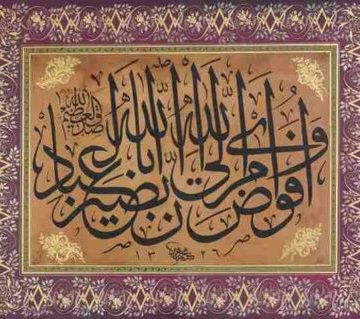 وافوض امرى الى الله ان الله بصير بالعباد
صدق الله العظيم
١٣٢٦